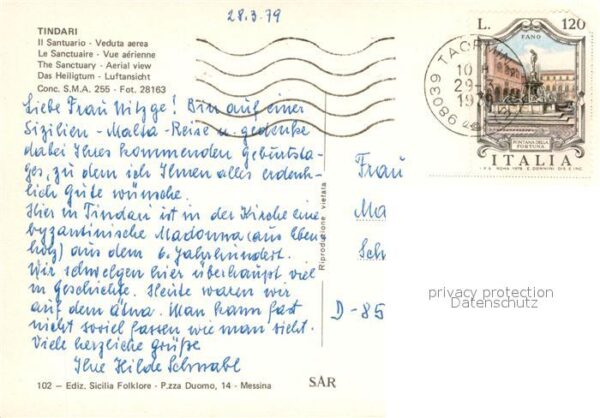 28.3.79
TINDARI
Il Santuario - Veduta aerea
Le Sanctuaire - Vue aérienne
The Sanctuary - Aerial view
Das Heiligtum - Luftansicht
Conc. S.M.A. 255 - Fot. 28163
Liebe Frau Nitzge! Bin auf einer
Sizilien - Malta - Reise u. gedenke
dabei Ihres kommenden Geburtsta-
ges, zu dem ich Ihnen alles erdenk-
lich Gute wünsche.
Hier in Tindari ist in der Kirche eine
byzantinische Madonna (aus Eben
holz) aus dem 6. Jahrhundert.
Wir schwelgen hier überhaupt viel
in Geschichte. Heute waren wir
auf dem Ätna. Man kann fast
nicht soviel fassen wie man sieht.
Viele herzliche Grüße
Ihre Hilde Schwabl
102 - Ediz. Sicilia Folklore - P.zza Duomo, 14 - Messina
SÀR
Riproduzione vietata
Frau
Ma
Sch
D-85
L. 120
FANO
FONTANA DELLA
FORTUNA
ITALIA
I.P.S. ROMA 1978 E. DONNINI DIS. E INC.
98039 TAORMI
29-3
privacy protection
Datenschutz